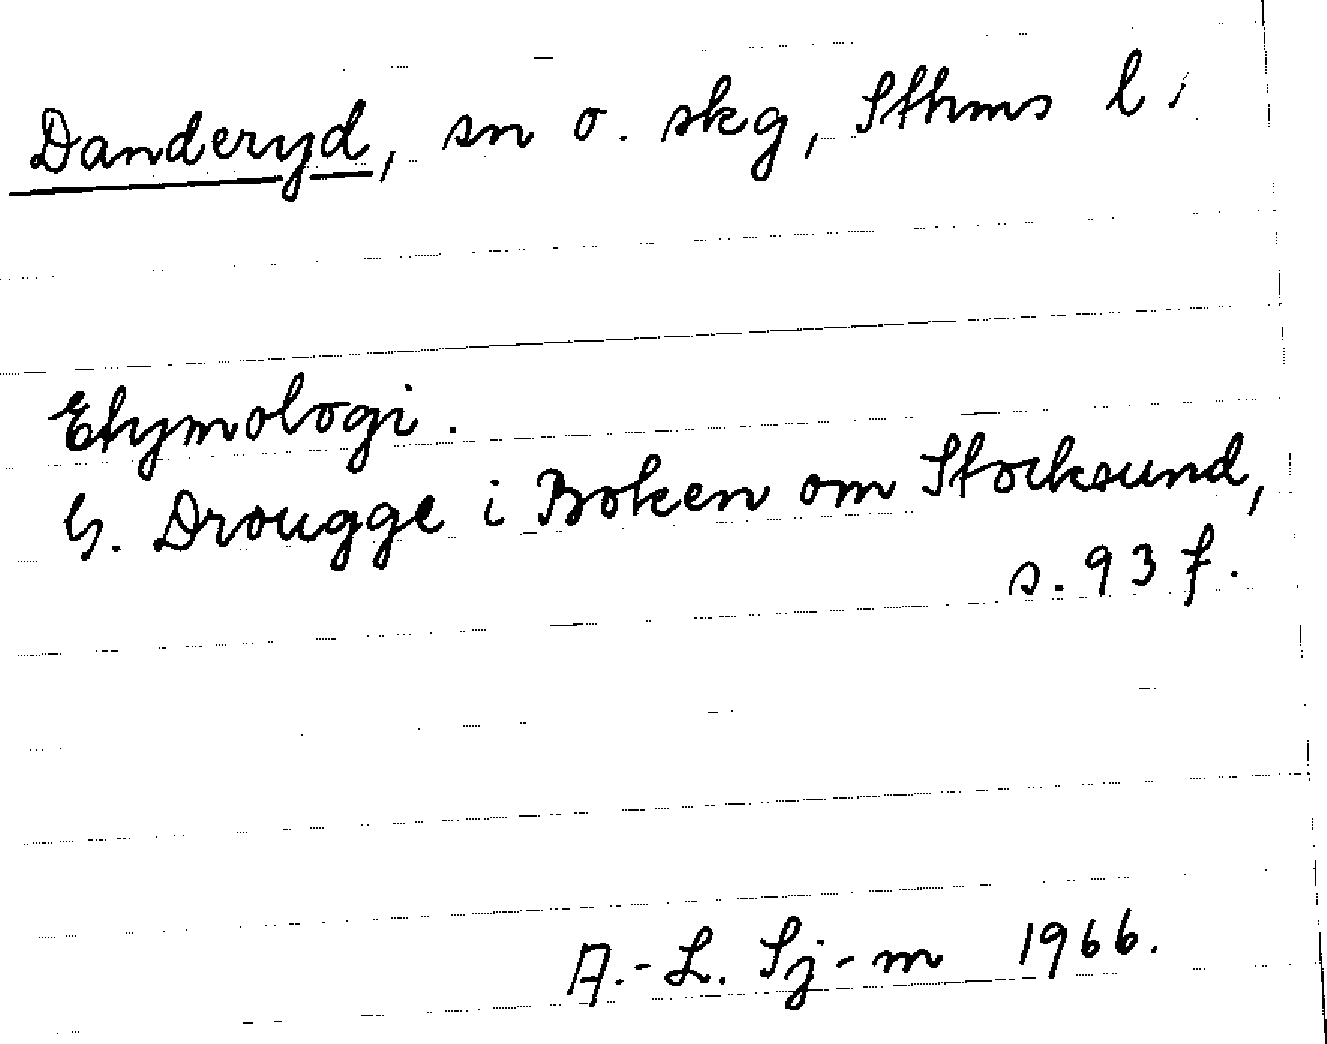 Danderyd, sn o. skg, Sthms l.
Etymologi.
G. Drougge i Boken om Stocksund,
s. 93 f.
A.-L. Sj-m 1966.